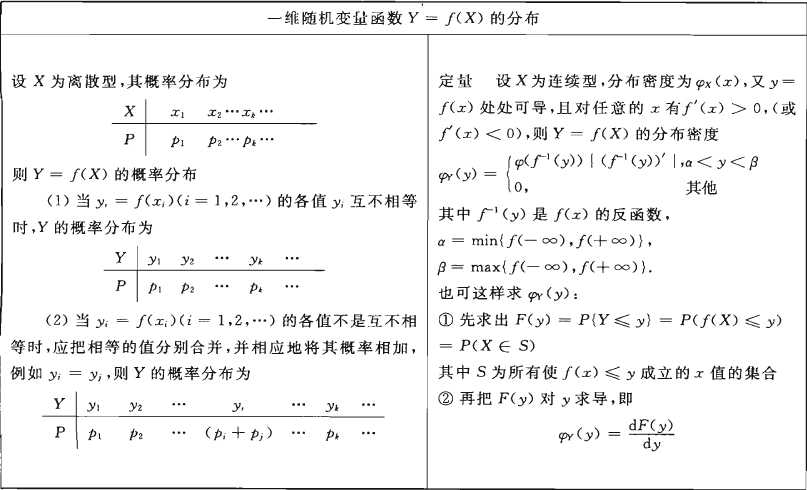 一维随机变量函数 Y = f(X) 的分布
设 X 为离散型,其概率分布为
X x₁ x₂ ⋯ xₖ ⋯
P p₁ p₂ ⋯ pₖ ⋯
则 Y = f(X) 的概率分布
(1) 当 yᵢ = f(xᵢ)(i = 1,2,⋯) 的各值 yᵢ 互不相等
时,Y 的概率分布为
Y y₁ y₂ ⋯ yₖ ⋯
P p₁ p₂ ⋯ pₖ ⋯
(2) 当 yᵢ = f(xᵢ)(i = 1,2,⋯) 的各值不是互不相
等时,应把相等的值分别合并,并相应地将其概率相加,
例如 yᵢ = yⱼ,则 Y 的概率分布为
Y y₁ y₂ ⋯ yᵢ ⋯ yₖ ⋯
P p₁ p₂ ⋯ (pᵢ + pⱼ) ⋯ pₖ ⋯
定量 设 X 为连续型,分布密度为 φX(x),又 y =
f(x) 处处可导,且对任意的 x 有 f′(x) > 0,(或
f′(x) < 0),则 Y = f(X) 的分布密度
φY(y) = { φ(f⁻¹(y)) | (f⁻¹(y))′ |, α < y < β
0, 其他
其中 f⁻¹(y) 是 f(x) 的反函数,
α = min{f(−∞),f(+∞)},
β = max{f(−∞),f(+∞)}.
也可这样求 φY(y):
① 先求出 F(y) = P{Y ⩽ y} = P(f(X) ⩽ y)
= P(X ∈ S)
其中 S 为所有使 f(x) ⩽ y 成立的 x 值的集合
② 再把 F(y) 对 y 求导,即
φY(y) = dF(y)/dy